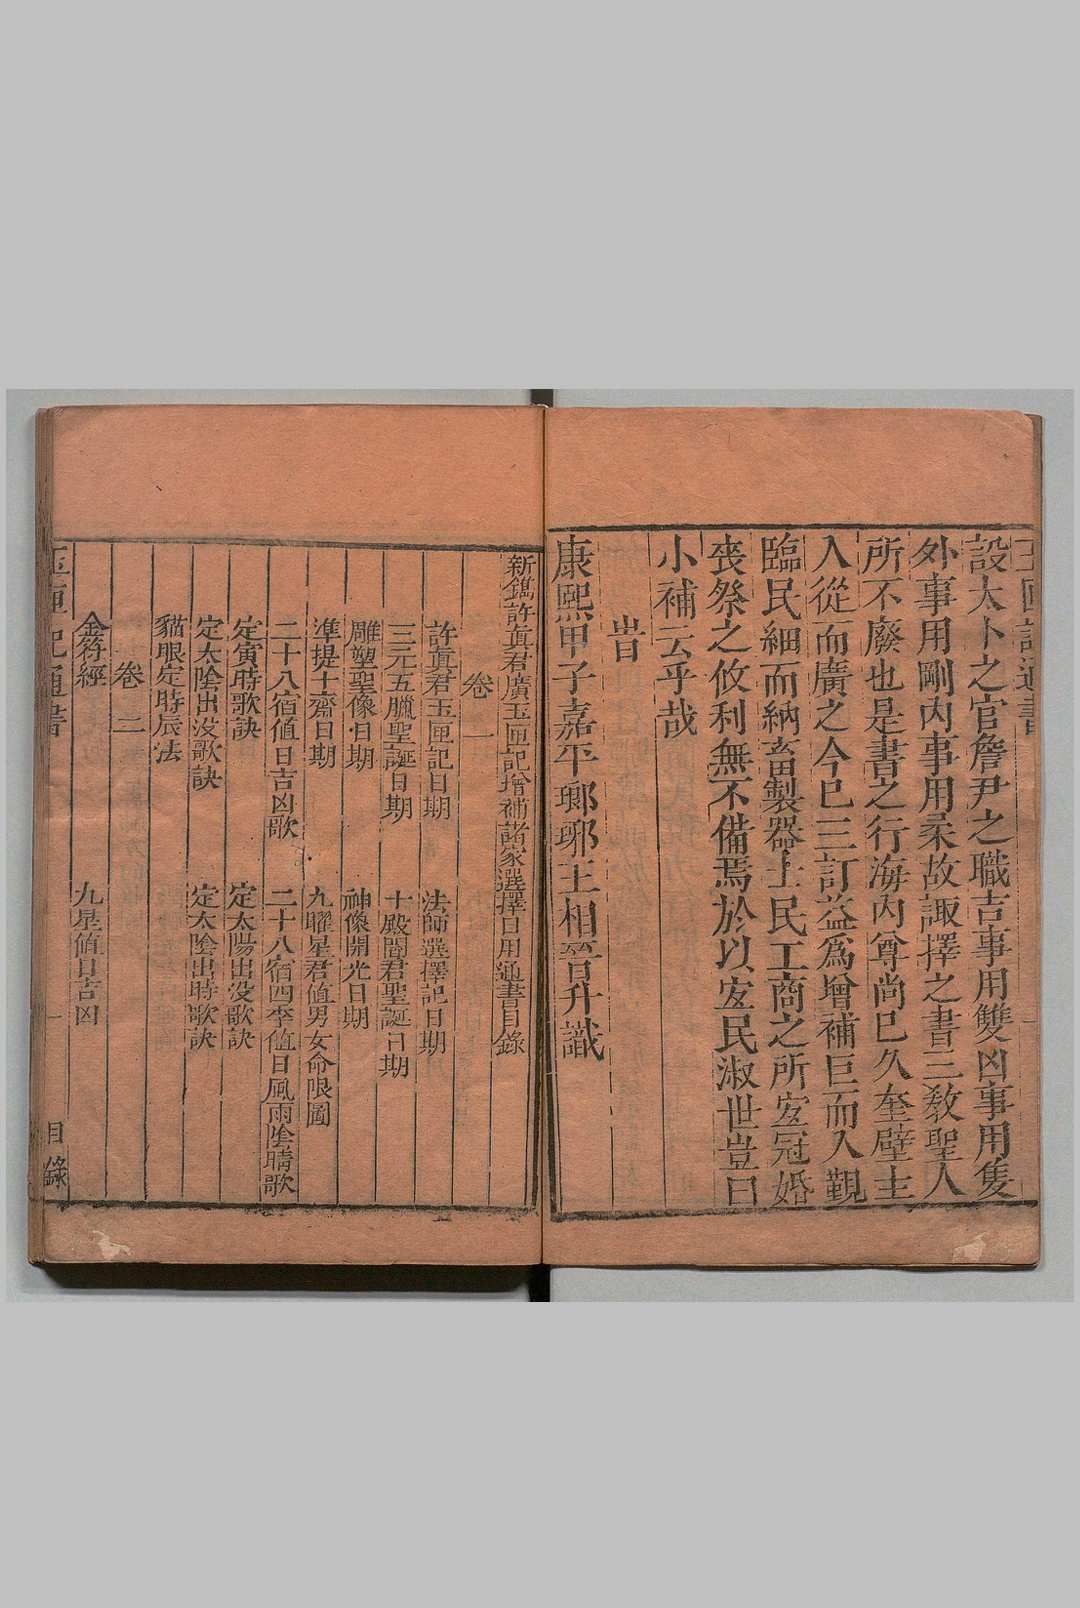 玉匣記通書
設太卜之官詹尹之職吉事用雙凶事用隻
外事用剛內事用柔故諏擇之書三敎聖人
所不廢也是書之行海內尊尚已久奎壁主
入從而廣之今已三訂益為增補巨而入覲
臨民細而納畜製器士民工商之所宐冠婚
喪祭之攸利無不備焉於以宐民淑世豈曰
小補云乎哉
旹
康熙甲子嘉平瑯琊王相晉升識
新鐫許眞君廣玉匣記增補諸家選擇日用通書目錄
卷一
許眞君玉匣記日期 法師選擇記日期
三元五臘聖誕日期 十殿閻君聖誕日期
雕塑聖像日期 神像開光日期
準提十齋日期 九曜星君值男女命限圖
二十八宿值日吉凶歌 二十八宿四季值日風雨陰晴歌
定寅時歌訣 定太陽出没歌訣
定太陰出没歌訣 定太陰出時歌訣
貓眼定時辰法
卷二
金符經 九星值日吉凶
玉匣記通書 一 目錄